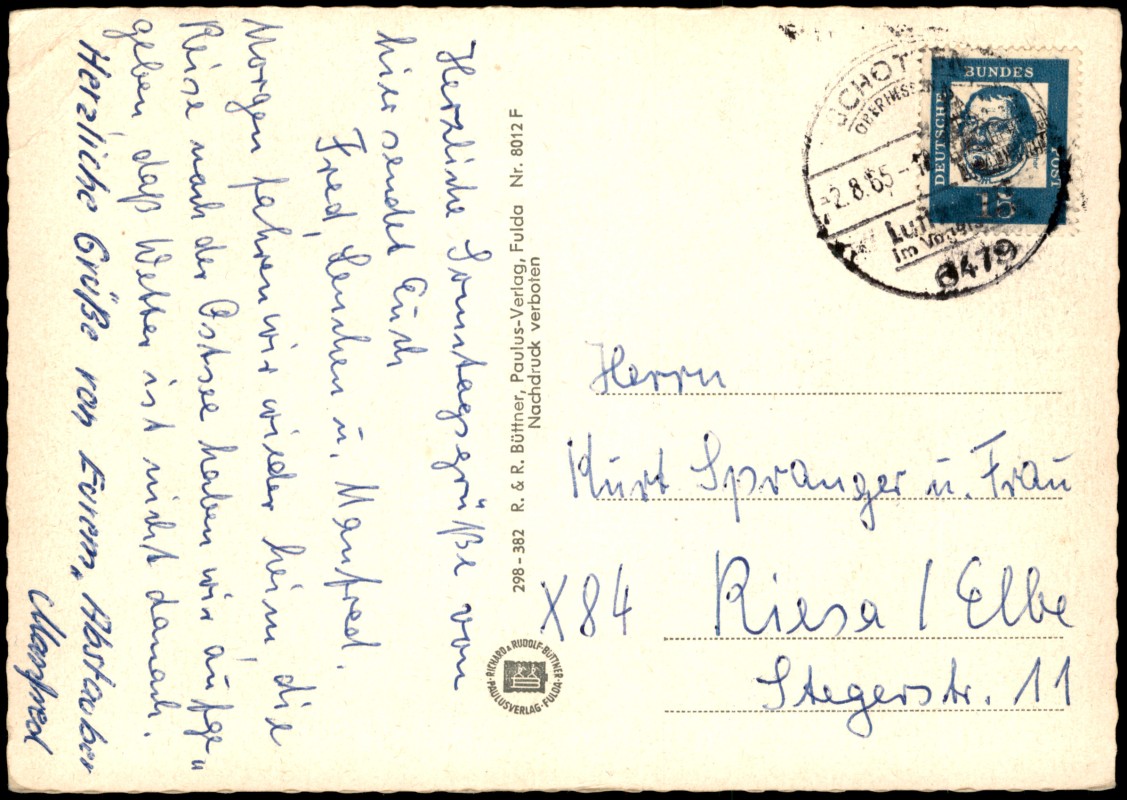 Herzliche Sonntagsgrüße vom
hier sendet Euch
Fred, Lenchen u. Manfred.
Morgen fahren wir wieder heim, die
Reise nach der Ostsee haben wir aufge-
geben, daß Wetter ist nicht danach.
Herzliche Grüße von Eurem „Abstauber
Manfred
298–382 R. & R. Büttner, Paulus-Verlag, Fulda Nr. 8012 F
Nachdruck verboten
RICHARD & RUDOLF BÜTTNER
PAULUSVERLAG · FULDA
SCHOTTEN
-2.8.65-1
im
6479
BUNDES
DEUTSCHE
POST
15
Herrn
Kurt Spranger u. Frau
X84 Riesa / Elbe
Stegerstr. 11